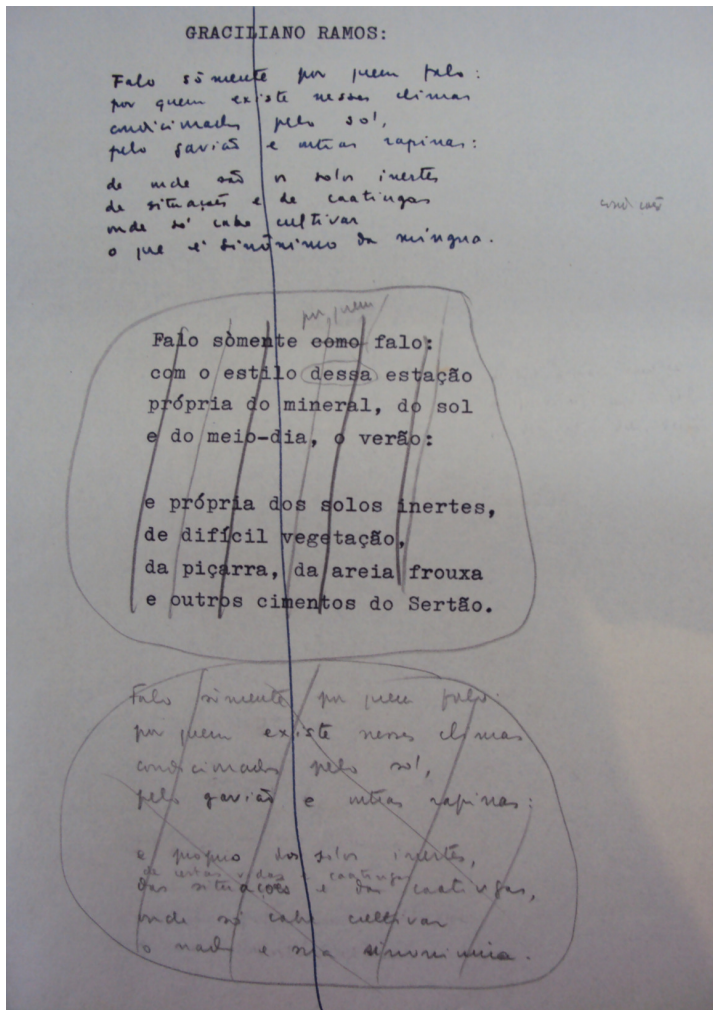 GRACILIANO RAMOS:
Falo sòmente por quem falo:
por quem existe nesses climas
condicionados pelo sol,
pelo gavião e outras rapinas:
de onde são os solos inertes
de situações e de caatingas
onde só cabe cultivar
o que é sinônimo da míngua.
por quem
Falo sòmente como falo:
com o estilo dessa estação
própria do mineral, do sol
e do meio-dia, o verão:
e própria dos solos inertes,
de difícil vegetação,
da piçarra, da areia frouxa
e outros cimentos do Sertão.
Falo sòmente por quem falo:
por quem existe nesses climas
condicionados pelo sol,
pelo gavião e outras rapinas:
e próprio dos solos inertes,
de estas vidas e caatingas
das situações e das caatingas,
onde só cabe cultivar
o nada e sua sinonímia.